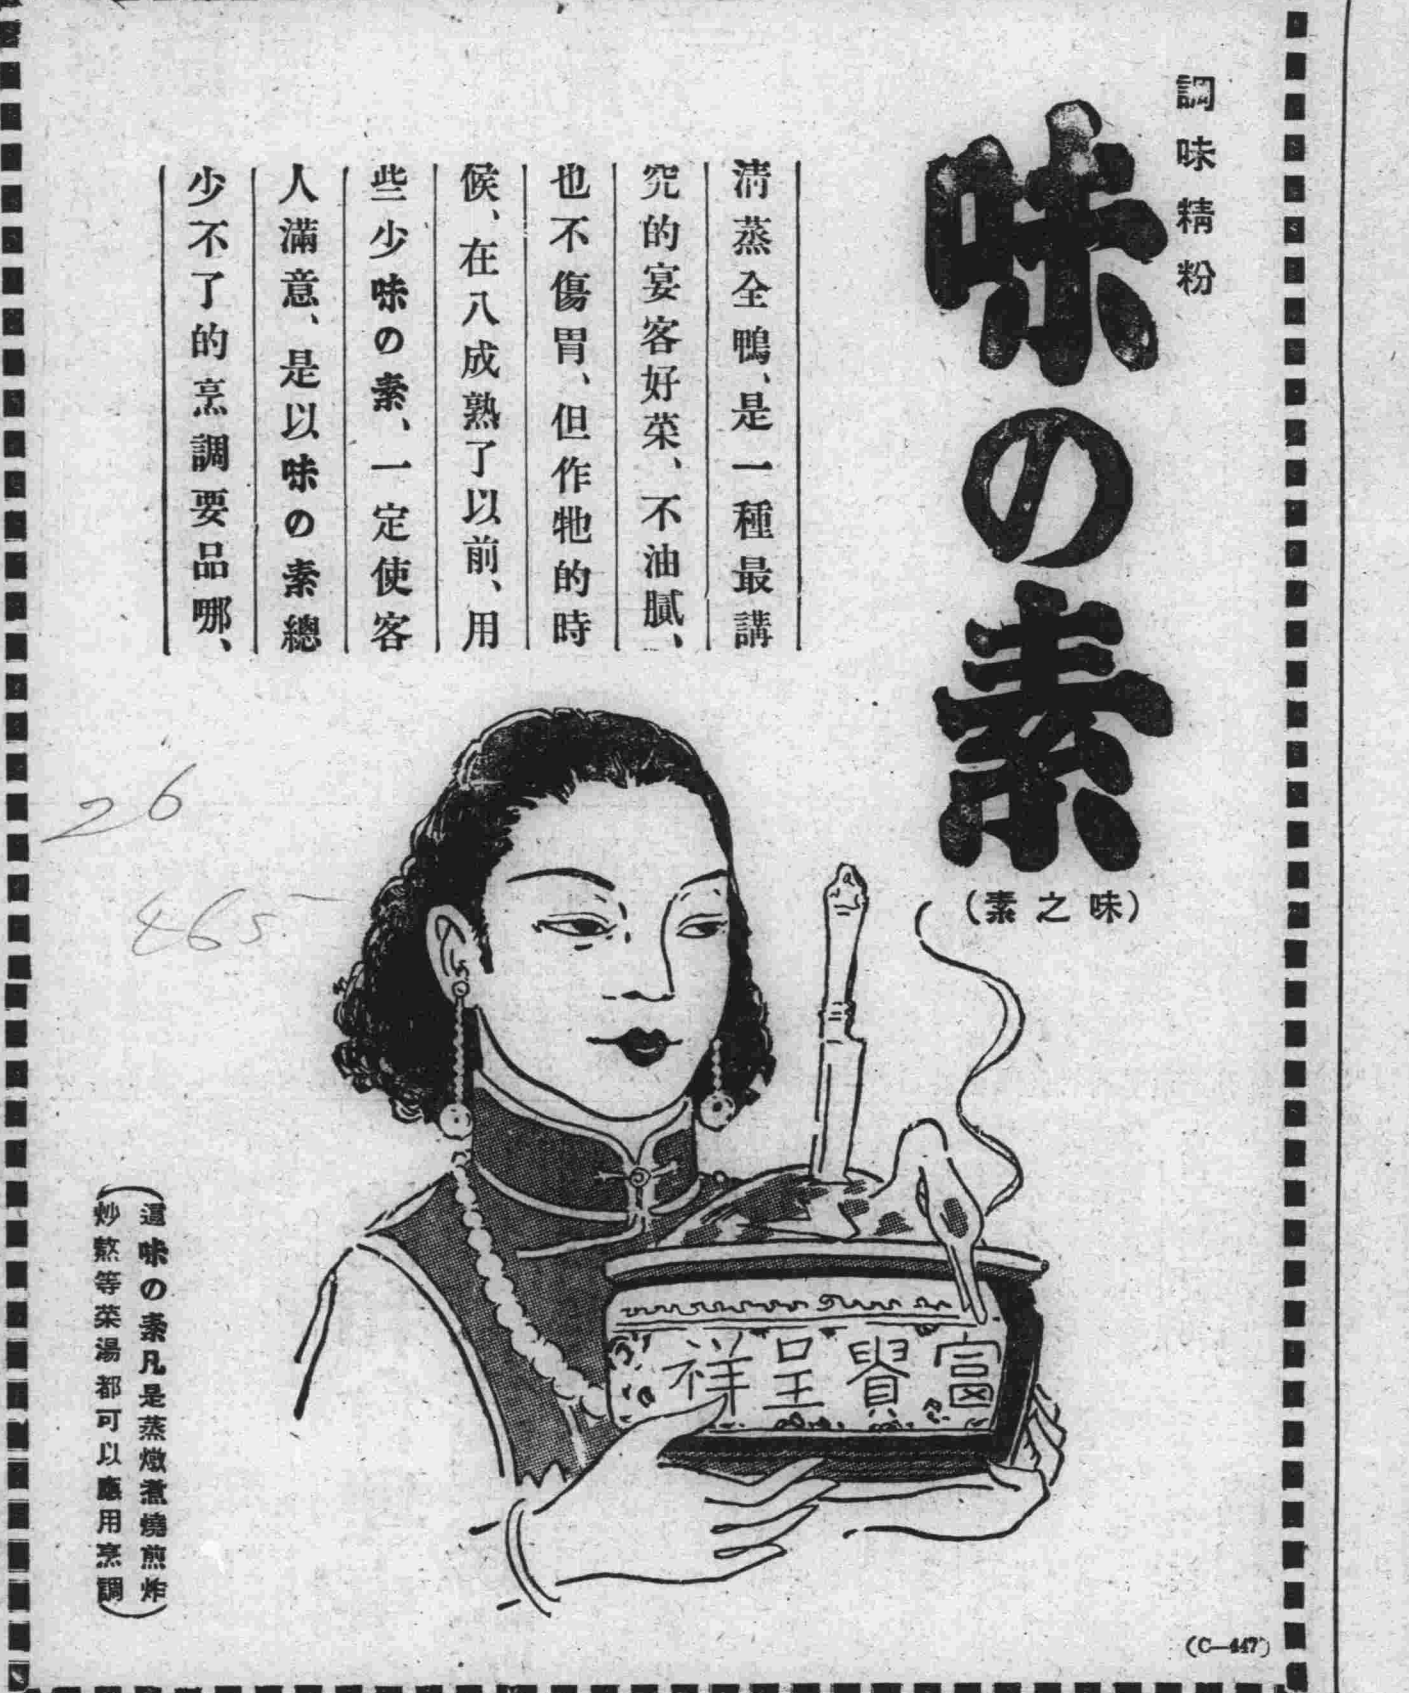 調味精粉
味の素
（味之素）
清蒸全鴨、是一種最講
究的宴客好菜、不油膩、
也不傷胃、但作牠的時
候、在八成熟了以前、用
些少味の素、一定使客
人滿意、是以味の素總
少不了的烹調要品哪、
26
465-
富貴呈祥
（這味の素凡是蒸燉煮燒煎炸
炒熬等菜湯都可以應用烹調）
(C—447)